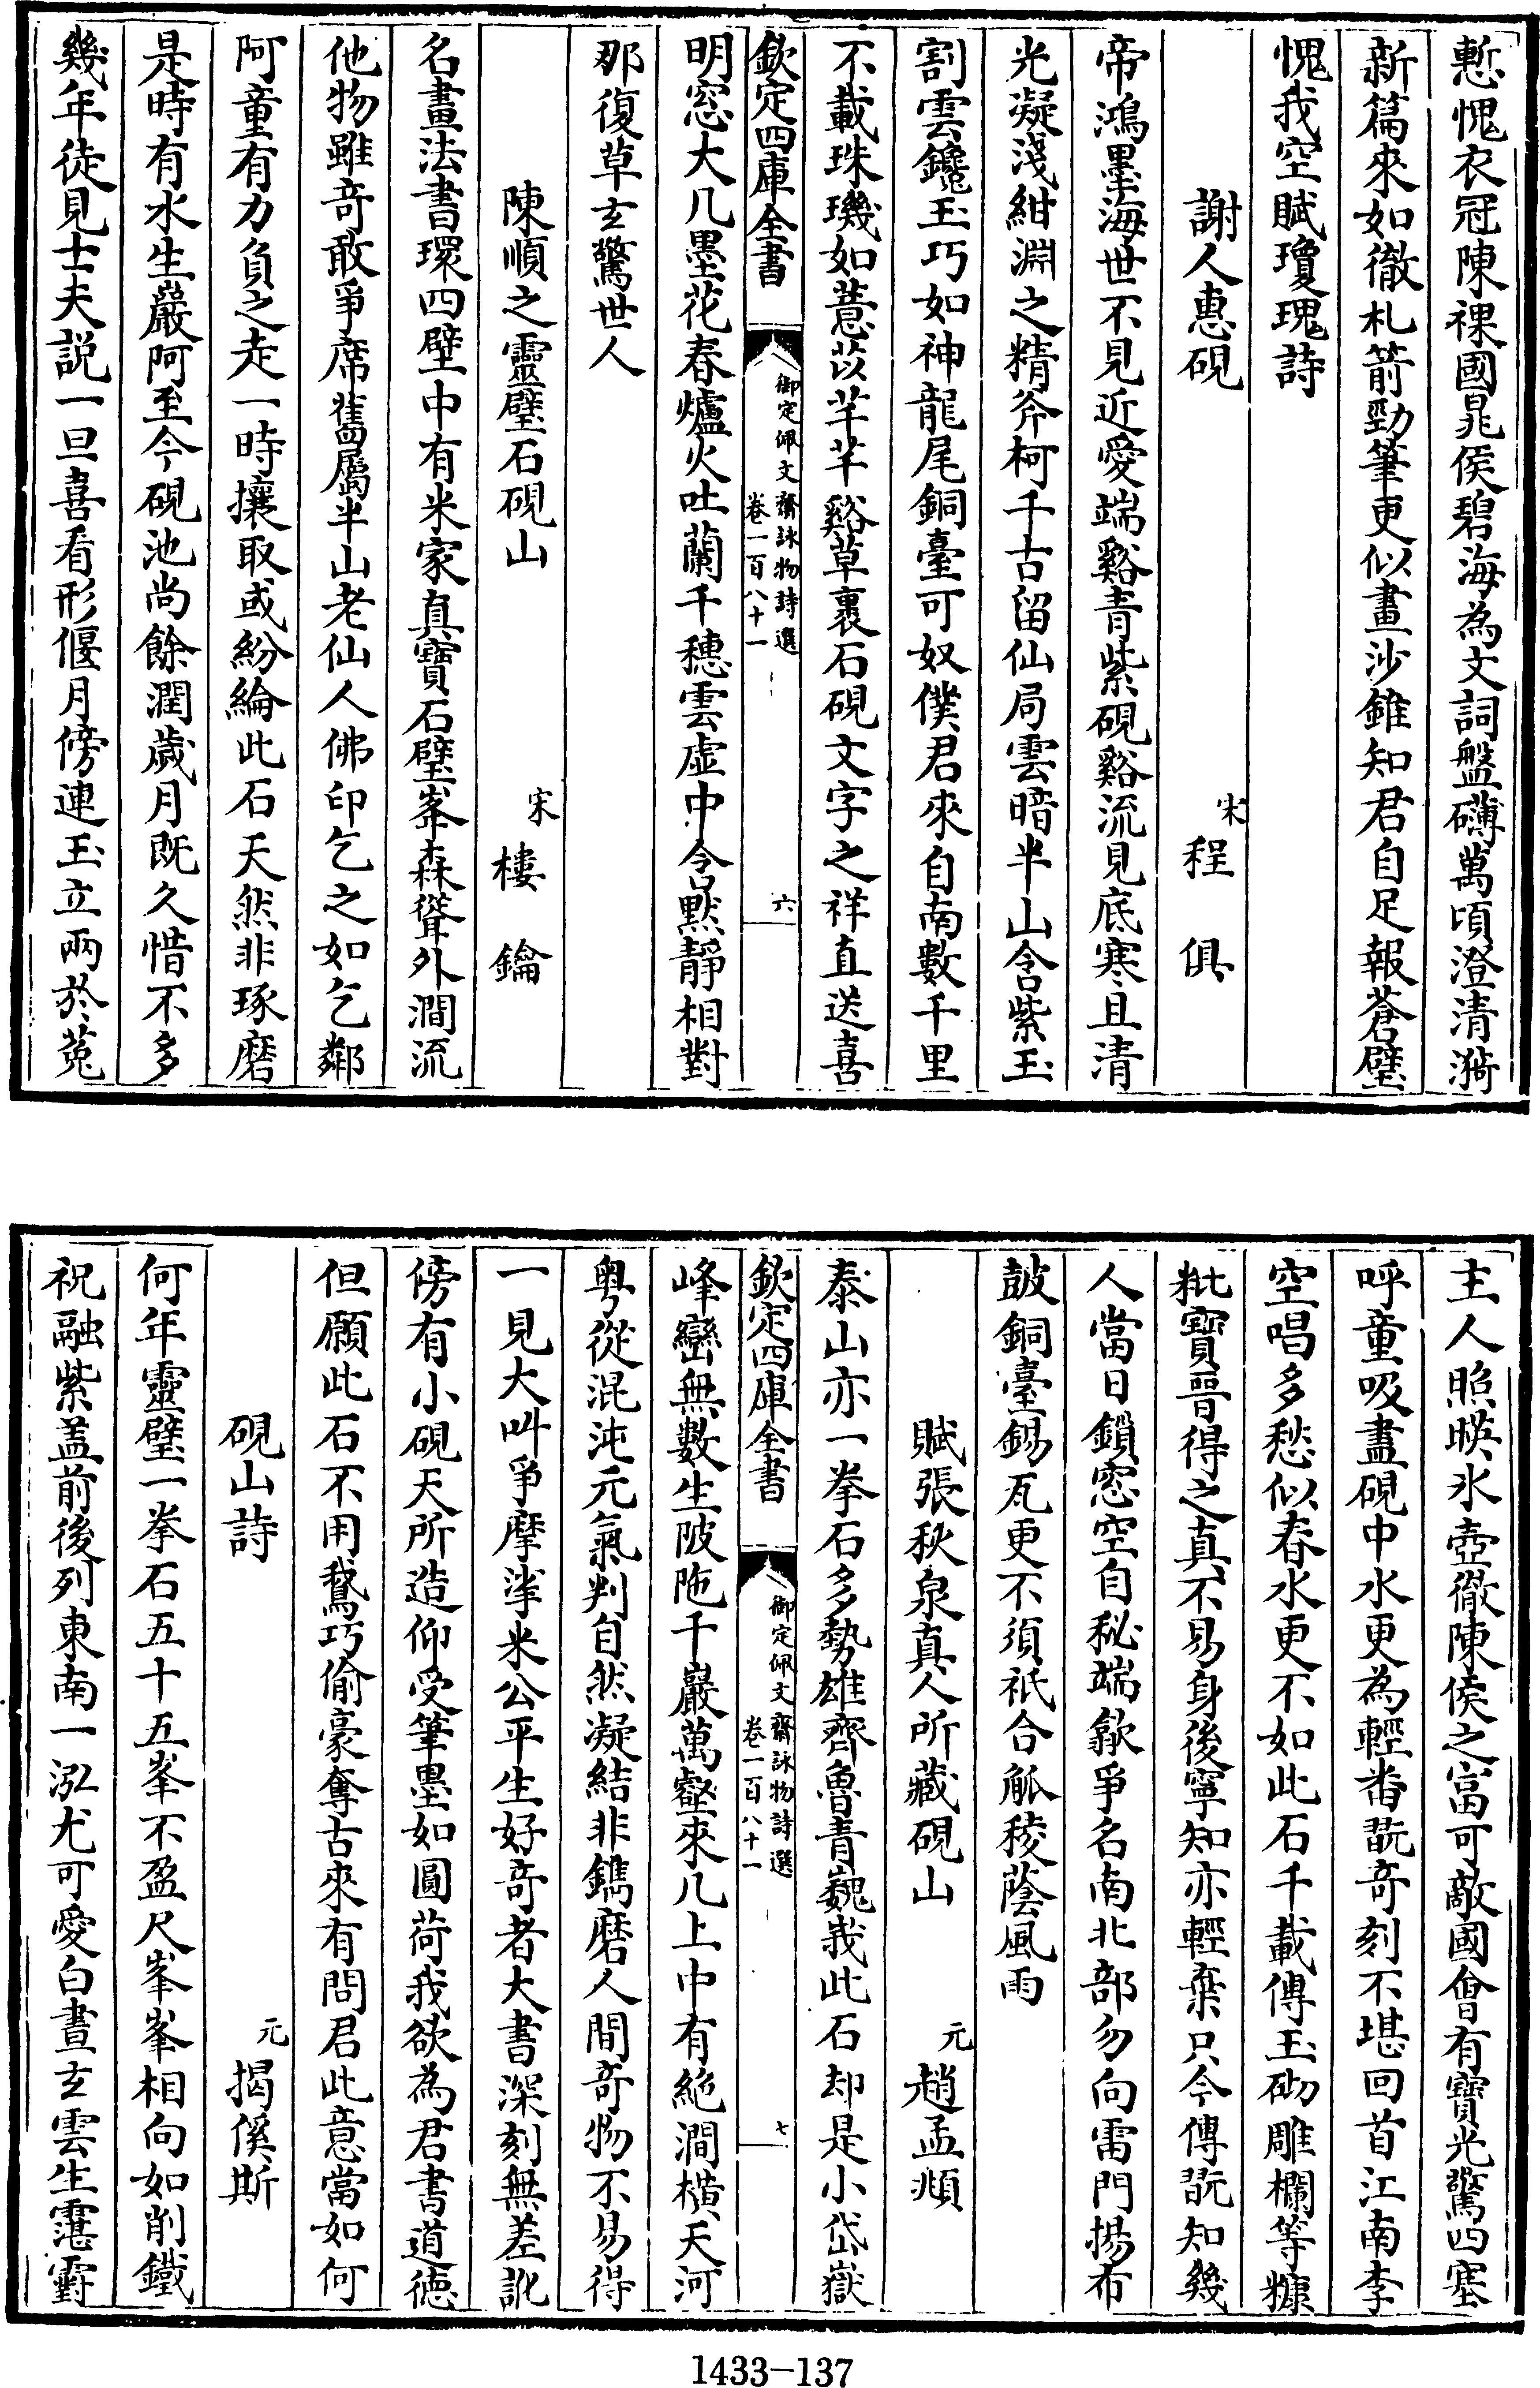 慙愧衣冠陳裸國晁侯碧海為文詞盤礴萬頃澄清漪
新篇來如徹札箭勁筆更似畫沙錐知君自足報蒼璧
愧我空賦瓊瑰詩
謝人惠硯 宋程俱
帝鴻墨海世不見近愛端谿青紫硯谿流見底寒且清
光凝淺紺淵之精斧柯千古留仙局雲暗半山含紫玉
割雲鑱玉巧如神龍尾銅臺可奴僕君來自南數千里
不載珠璣如薏苡芊芊谿草裹石硯文字之祥直送喜
欽定四庫全書 御定佩文齋詠物詩選 卷一百八十一 六
明窓大几墨花春爐火吐蘭千穗雲虛中含黙靜相對
那復草玄驚世人
陳順之靈璧石硯山 宋樓鑰
名畫法書環四壁中有米家真寶石璧峯森聳外澗流
他物雖奇敢爭席舊屬半山老仙人佛印乞之如乞鄰
阿童有力負之走一時攘取或紛綸此石天然非琢磨
是時有水生巖阿至今硯池尚餘潤歲月既久惜不多
幾年徒見士夫説一旦喜看形偃月傍連玉立兩於菟
主人照暎氷壺徹陳侯之富可敵國會有寶光驚四塞
呼童吸盡硯中水更為輕畨翫奇刻不堪回首江南李
空唱多愁似春水更不如此石千載傳玉砌雕欄等糠
粃寶晉得之真不易身後寧知亦輕棄只今傳翫知幾
人當日鎖窓空自秘端歙爭名南北部勿向雷門揚布
皷銅臺錫瓦更不須祇合觚稜蔭風雨
賦張秋泉真人所藏硯山 元趙孟頫
泰山亦一拳石多勢雄齊魯青巍峩此石却是小岱嶽
欽定四庫全書 御定佩文齋詠物詩選 卷一百八十一 七
峰巒無數生陂陁千巖萬壑來几上中有絶澗横天河
粤從混沌元氣判自然凝結非鐫磨人間奇物不易得
一見大叫爭摩挲米公平生好奇者大書深刻無差訛
傍有小硯天所造仰受筆墨如圓荷我欲為君書道徳
但願此石不用鵞巧偷豪奪古來有問君此意當如何
硯山詩 元揭傒斯
何年靈璧一拳石五十五峯不盈尺峯峯相向如削鐵
祝融紫盖前後列東南一泓尤可愛白晝玄雲生霮䨴
1433-137